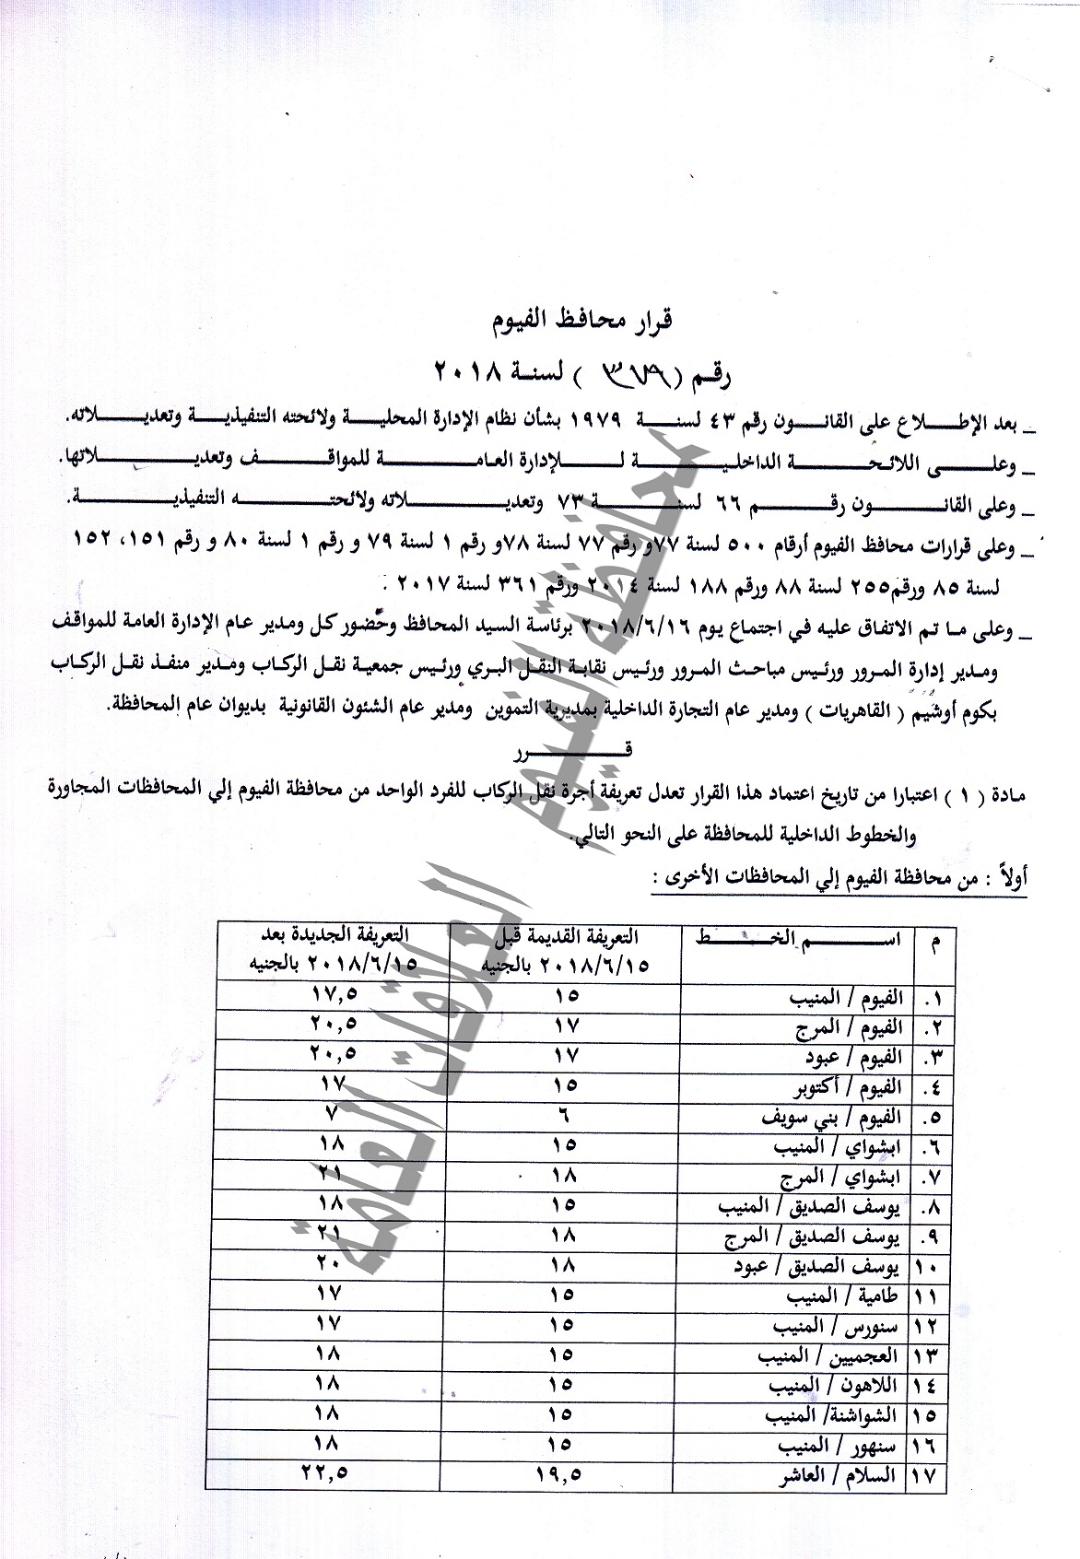 قرار محافظ الفيوم
رقم ( ٣٧٩ ) لسنة ٢٠١٨
_ بعد الإطلاع على القانون رقم ٤٣ لسنة ١٩٧٩ بشأن نظام الإدارة المحلية ولائحته التنفيذية وتعديلاته.
_ وعلى اللائحة الداخلية للإدارة العامة للمواقف وتعديلاتها.
_ وعلى القانون رقم ٦٦ لسنة ٧٣ وتعديلاته ولائحته التنفيذية.
_ وعلى قرارات محافظ الفيوم أرقام ٥٠٠ لسنة ٧٧و رقم ٧٧ لسنة ٧٨و رقم ١ لسنة ٧٩ و رقم ١ لسنة ٨٠ و رقم ١٥١، ١٥٢
لسنة ٨٥ ورقم٢٥٥ لسنة ٨٨ ورقم ١٨٨ لسنة ٢٠١٤ ورقم ٣٦١ لسنة ٢٠١٧ .
_ وعلى ما تم الاتفاق عليه في اجتماع يوم ٢٠١٨/٦/١٦ برئاسة السيد المحافظ وحضور كل ومدير عام الإدارة العامة للمواقف
ومدير إدارة المرور ورئيس مباحث المرور ورئيس نقابة النقل البري ورئيس جمعية نقل الركاب ومدير منفذ نقل الركاب
بكوم أوشيم ( القاهريات ) ومدير عام التجارة الداخلية بمديرية التموين ومدير عام الشئون القانونية بديوان عام المحافظة.
قرر
مادة ( ١ ) اعتبارا من تاريخ اعتماد هذا القرار تعدل تعريفة أجرة نقل الركاب للفرد الواحد من محافظة الفيوم إلي المحافظات المجاورة
والخطوط الداخلية للمحافظة على النحو التالي.
أولاً : من محافظة الفيوم إلي المحافظات الأخرى :
م اسم الخط التعريفة القديمة قبل ٢٠١٨/٦/١٥ بالجنيه التعريفة الجديدة بعد ٢٠١٨/٦/١٥ بالجنيه
١. الفيوم / المنيب ١٥ ١٧,٥
٢. الفيوم / المرج ١٧ ٢٠,٥
٣. الفيوم / عبود ١٧ ٢٠,٥
٤. الفيوم / أكتوبر ١٥ ١٧
٥. الفيوم / بني سويف ٦ ٧
٦. ابشواي / المنيب ١٥ ١٨
٧. ابشواي / المرج ١٨ ٢١
٨. يوسف الصديق / المنيب ١٥ ١٨
٩. يوسف الصديق / المرج ١٨ ٢١
١٠ يوسف الصديق / عبود ١٨ ٢٠
١١ طامية / المنيب ١٥ ١٧
١٢ سنورس / المنيب ١٥ ١٧
١٣ العجميين / المنيب ١٥ ١٨
١٤ اللاهون / المنيب ١٥ ١٨
١٥ الشواشنة/ المنيب ١٥ ١٨
١٦ سنهور / المنيب ١٥ ١٨
١٧ السلام / العاشر ١٩,٥ ٢٢,٥
محافظة الفيوم
العلاقات العامة